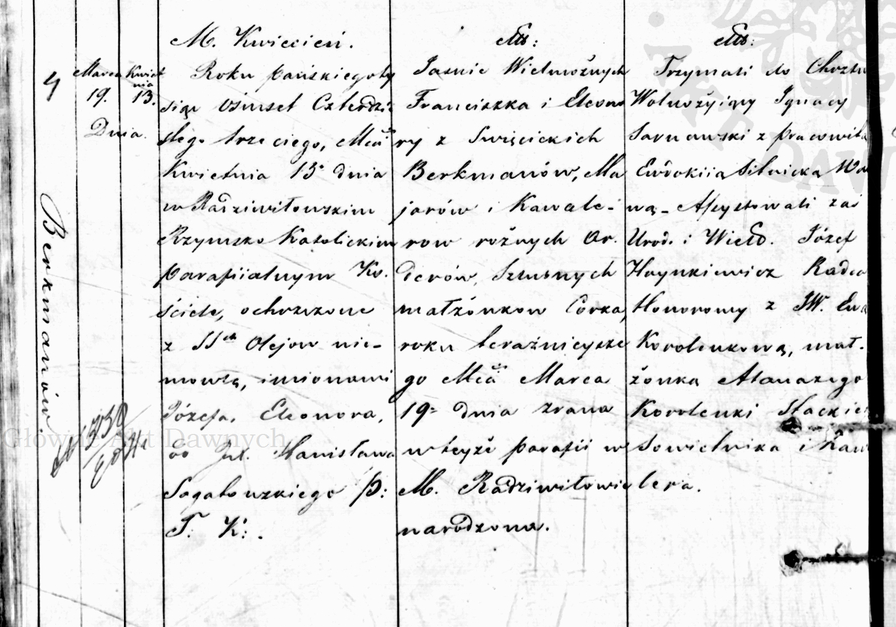 M. Kwiecień.
4
Marca 19. Dnia
Kwietnia 13.
Berkmanów
Roku pańskiego ty
siąc ośmset Czterdzie
stego trzeciego, Mca
Kwietnia 13º dnia
w Radziwiłowskim
Rzymsko Katolickim
parafiialnym Ko-
ściele, ochrzczone
z SSch Olejow nie-
mowlę, imionami
Józefa, Eleonora,
od Jx. Stanisława
Sagatowskiego P:
T. K:.
Jasnie Wielmożnych
Franciszka i Eleono
ry z Swięcickich
Berkmanów, Ma
jorów i Kawale-
row rożnych Or-
derów, Szlubnych
małżonkow Córka,
roku teraźnieysze
go Mca Marca
19º dnia zrana
w teyże parafii w
M. Radziwiłowie
narodzona.
Trzymali do Chrztu
Wolnożyiący Ignacy
Sarnawski z pracowitą
Ewdokiią Silnicką Wdo
wą- Assystowali zaś
Urod. i Wielb. Józef
Haynkiewicz Radca
Honorowy z JW. Ewą
Korolenkową, mał-
żonką Atanazego
Korolenki Stackiego
Sowietnika i Kawa
lera.
Główne Akt Dawnych